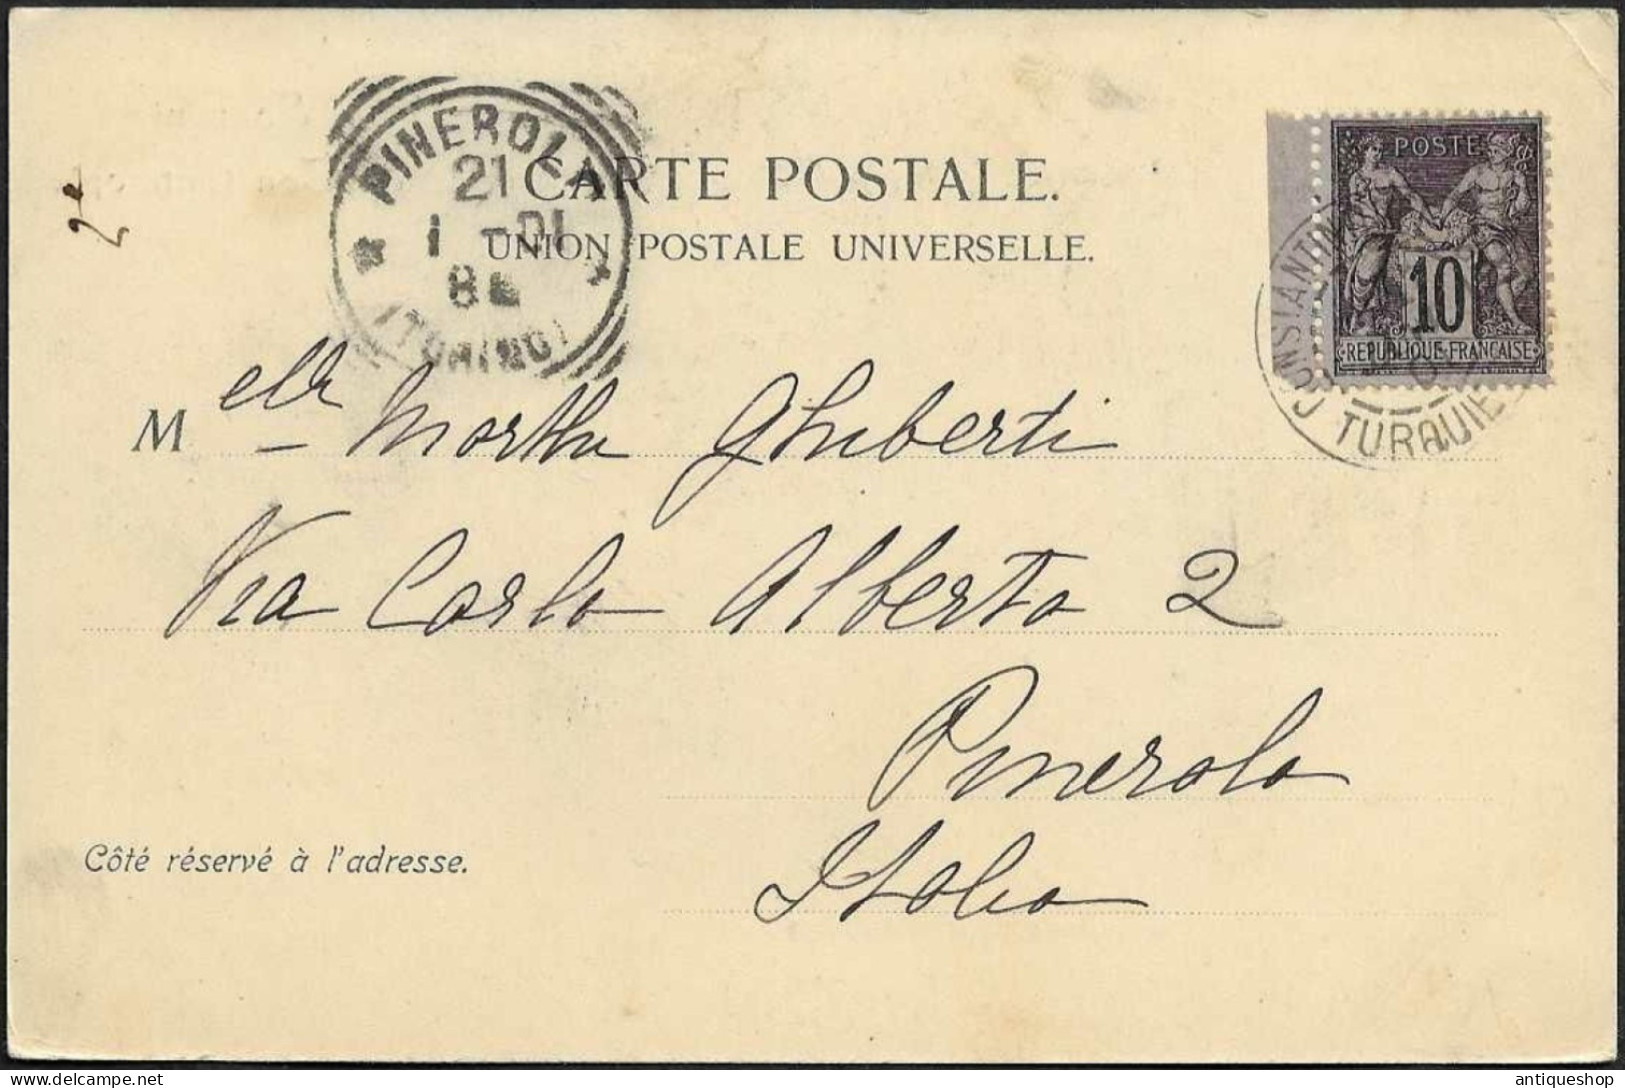 CARTE POSTALE.
UNION POSTALE UNIVERSELLE.
PINEROLO
21
1 - 01
8
(TORINO)
POSTE
10
REPUBLIQUE FRANCAISE
CONSTANTIN
TURQUIE
2e
Melle Martha Ghiberti
Via Carlo Alberto 2
Pinerolo
Italia
Côté réservé à l'adresse.
antiqueshop